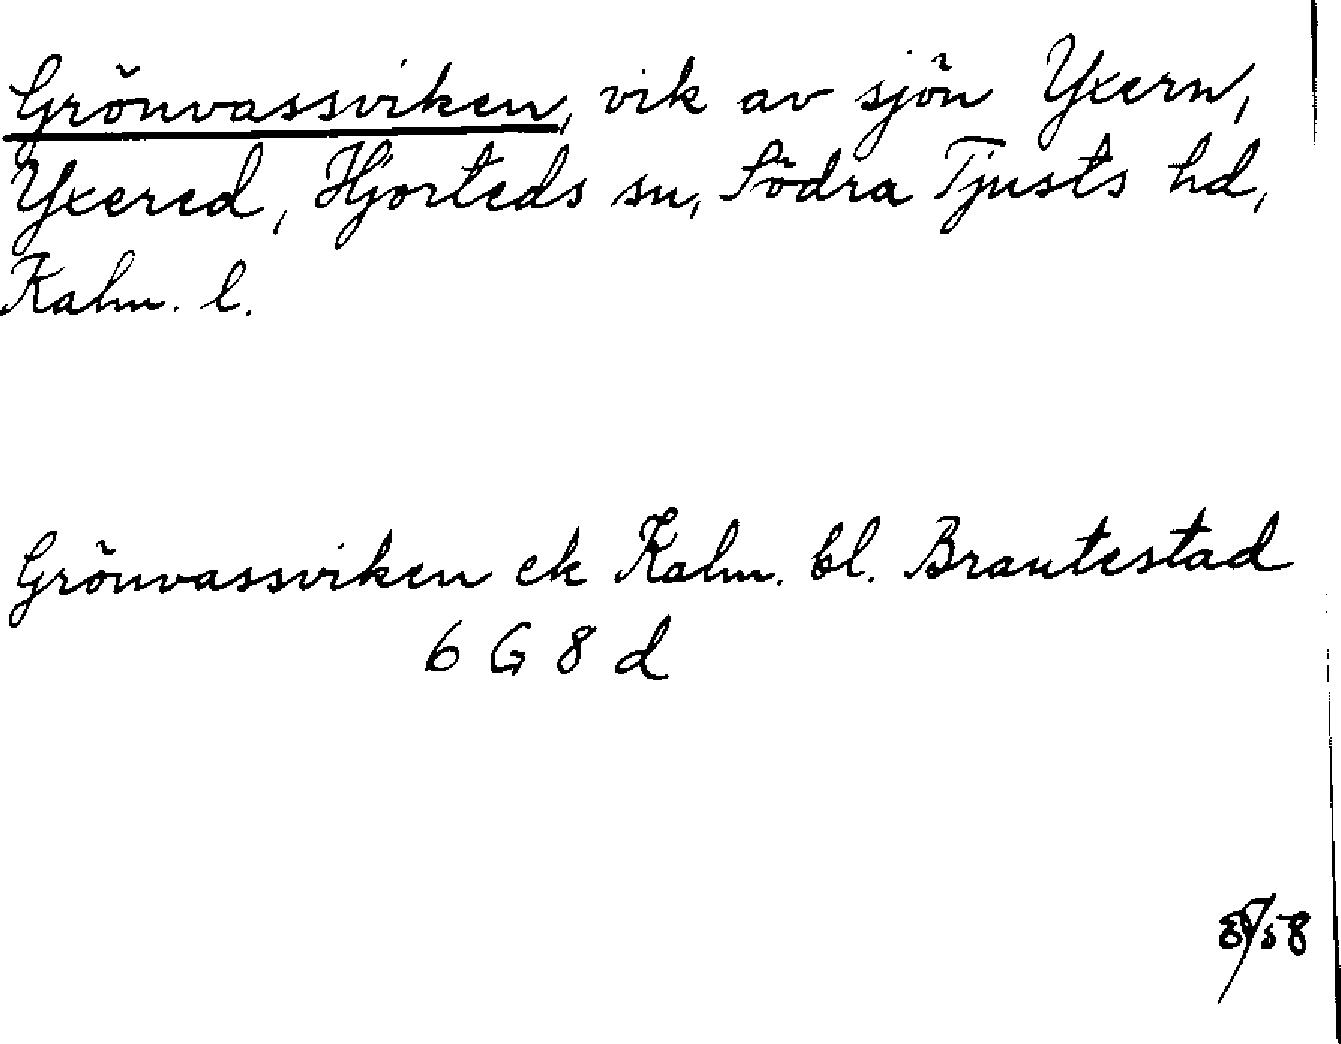 Grönvassviken, vik av sjön Yxern,
Yxered, Hjorteds sn, Södra Tjusts hd,
Kalm. l.
Grönvassviken ek Kalm. bl. Brantestad
6 G 8 d